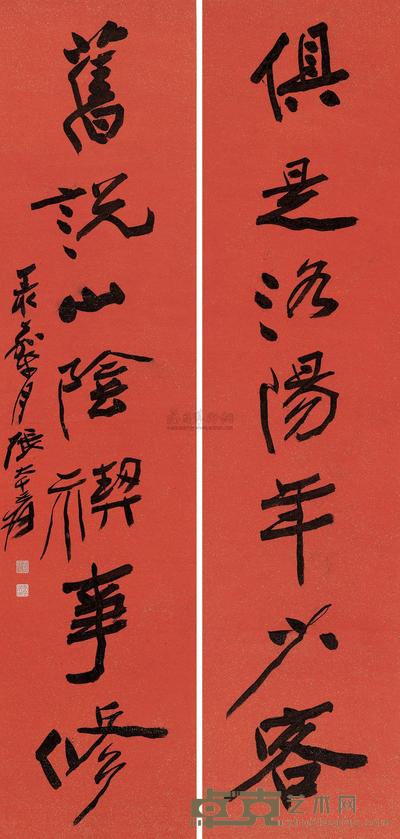 俱是洛陽年少客
舊說山陰禊事修
月張大千爰
卓克艺术网